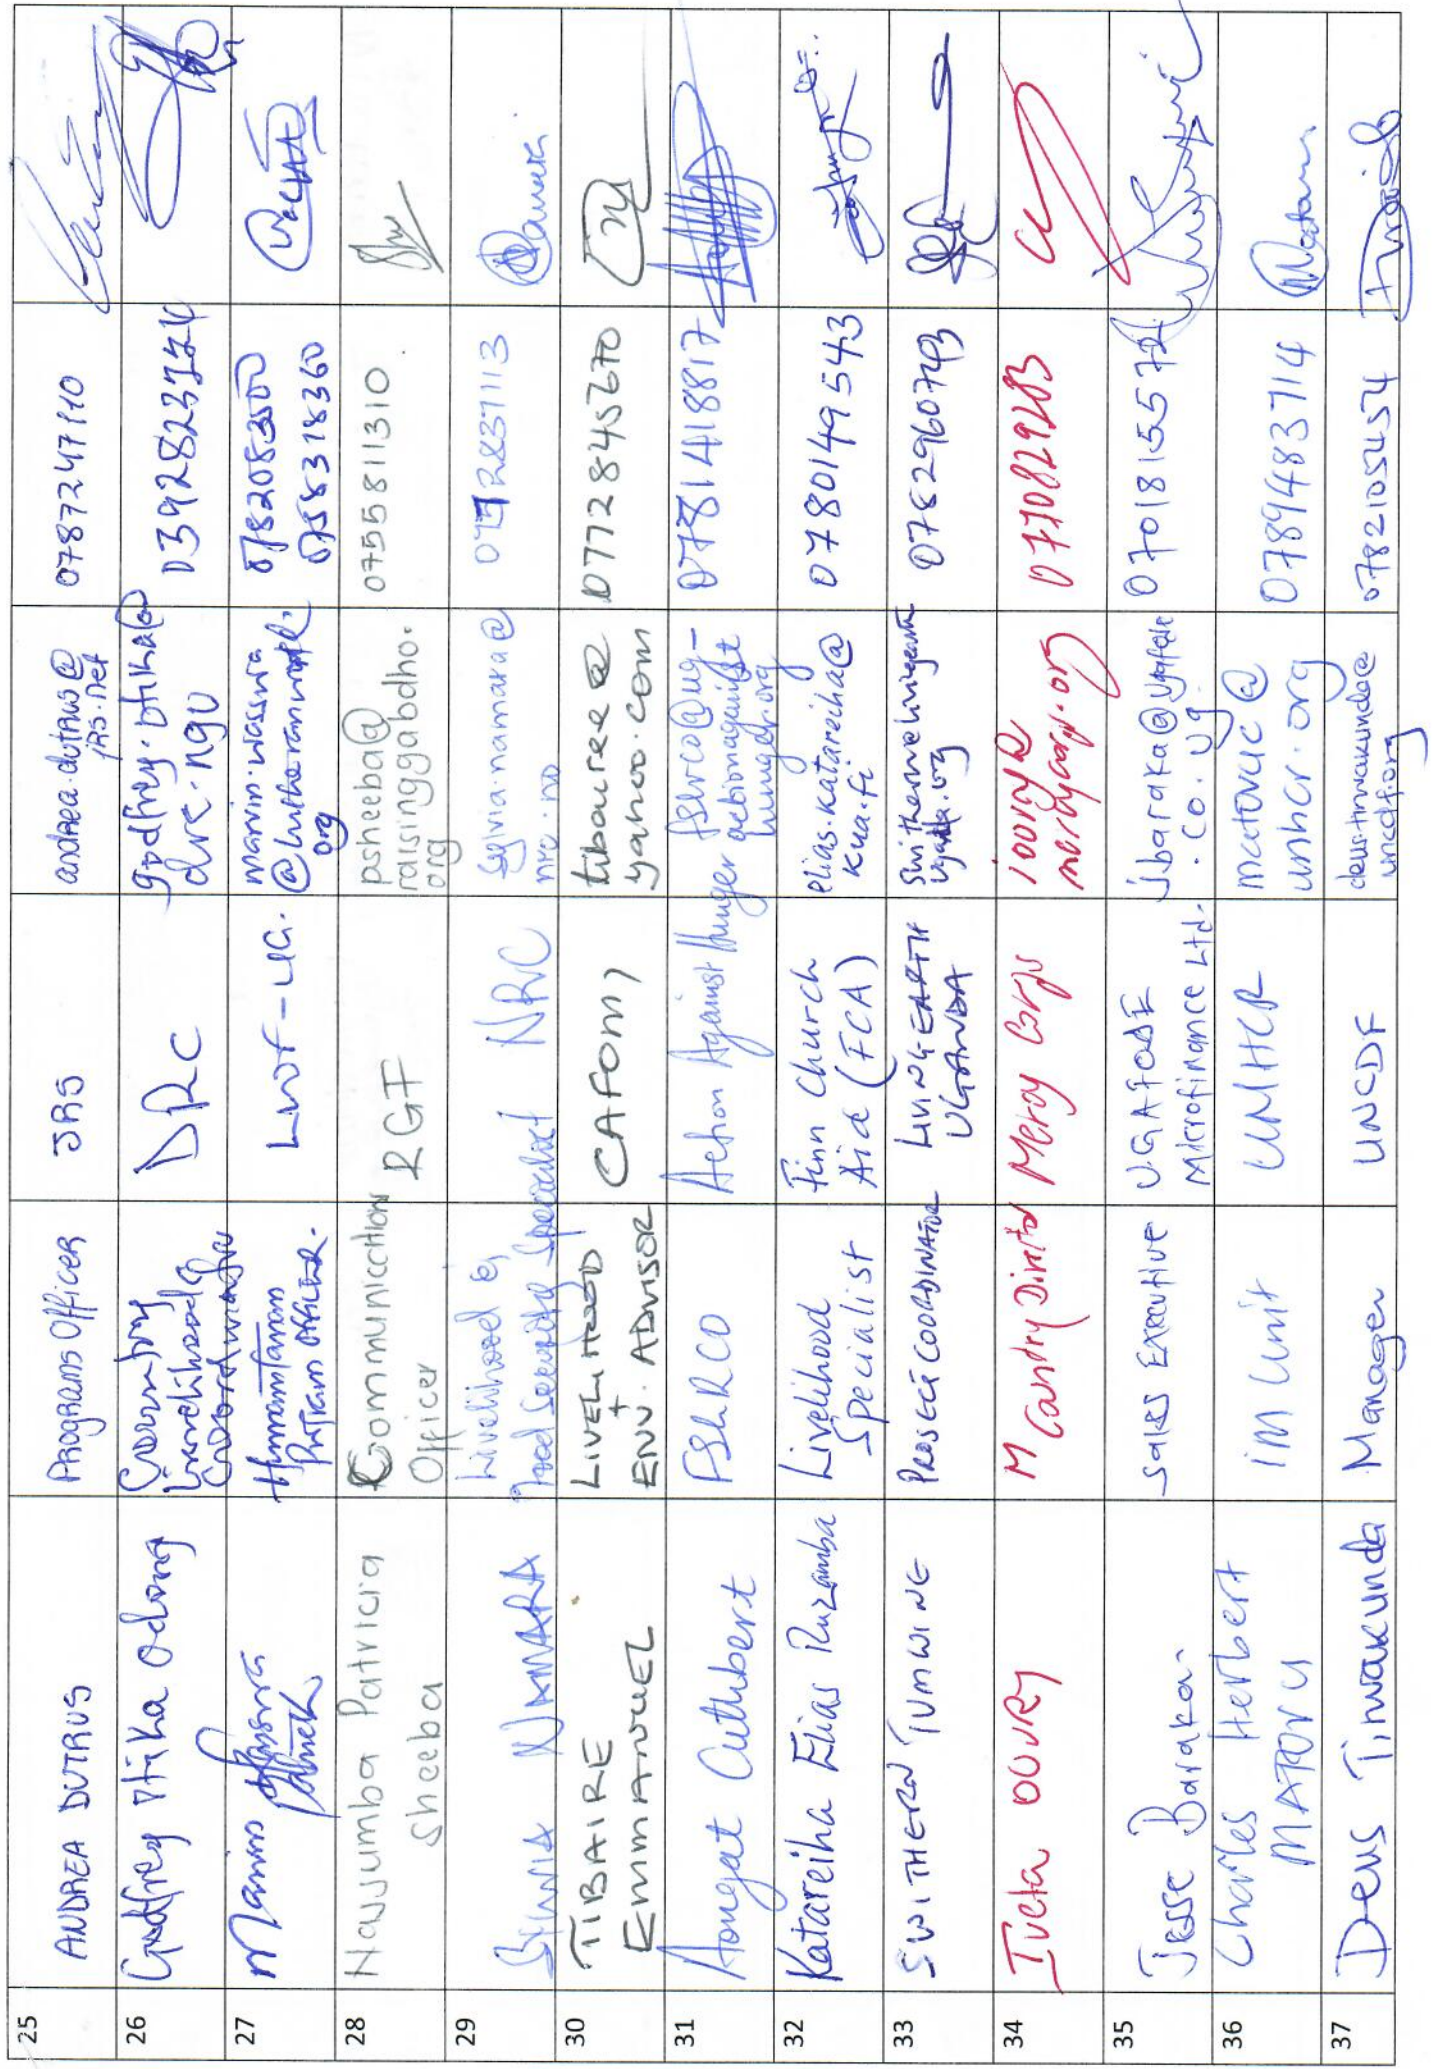 25
ANDREA DUTRUS
PROGRAMS OFFICER
JRS
andrea.dutrus@
jrs.net
0787247110
26
Godfrey Otika Odong
Country
Livelihood
Coordinator
DRC
godfrey.otika@
drc.ngo
0392823724
27
Marvin Wasswa
Patrick
Humanitarian
Program Officer.
LWF-UG.
marvin.wasswa
@lutheranworld.
org
0782083500
0758318360
28
Nawumba Patricia
Sheeba
Communication
Officer
RGF
psheeba@
raisinggabdho.
org
0755811310
29
Sylvia NAMARA
Livelihood &
Food Security Specialist
NRC
sylvia.namara@
nrc.no
30
TIBAIRE
EMMANUEL
LIVELIHOOD
+
ENV. ADVISOR
CAFOMI
tibauree@
yahoo.com
0772845670
31
Aongat Cuthbert
FSLRCO
Action Against Hunger
fslrco@ug-
actionagainst
hunger.org
0781418817
32
Katareiha Elias Ruzamba
Livelihood
Specialist
Finn Church
Aid (FCA)
elias.katareiha@
kua.fi
0780149543
33
SWITHERN TUMWINE
PROJECT COORDINATOR
LIVING EARTH
UGANDA
0782960793
34
Iveta OUVRY
M
Country Director
Mercy Corps
iouvry@
mercycorps.org
0770829283
35
Jesse Baraka.
Sales Executive
UGAFODE
Microfinance Ltd.
jbaraka@ugafode
.co.ug.
36
Charles Herbert
MATOVU
IM Unit
UNHCR
matovuc@
unhcr.org
0789483714
37
Deus Tirwakunda
Manager
UNCDF
deus.tirwakunda@
uncdf.org
0782105454